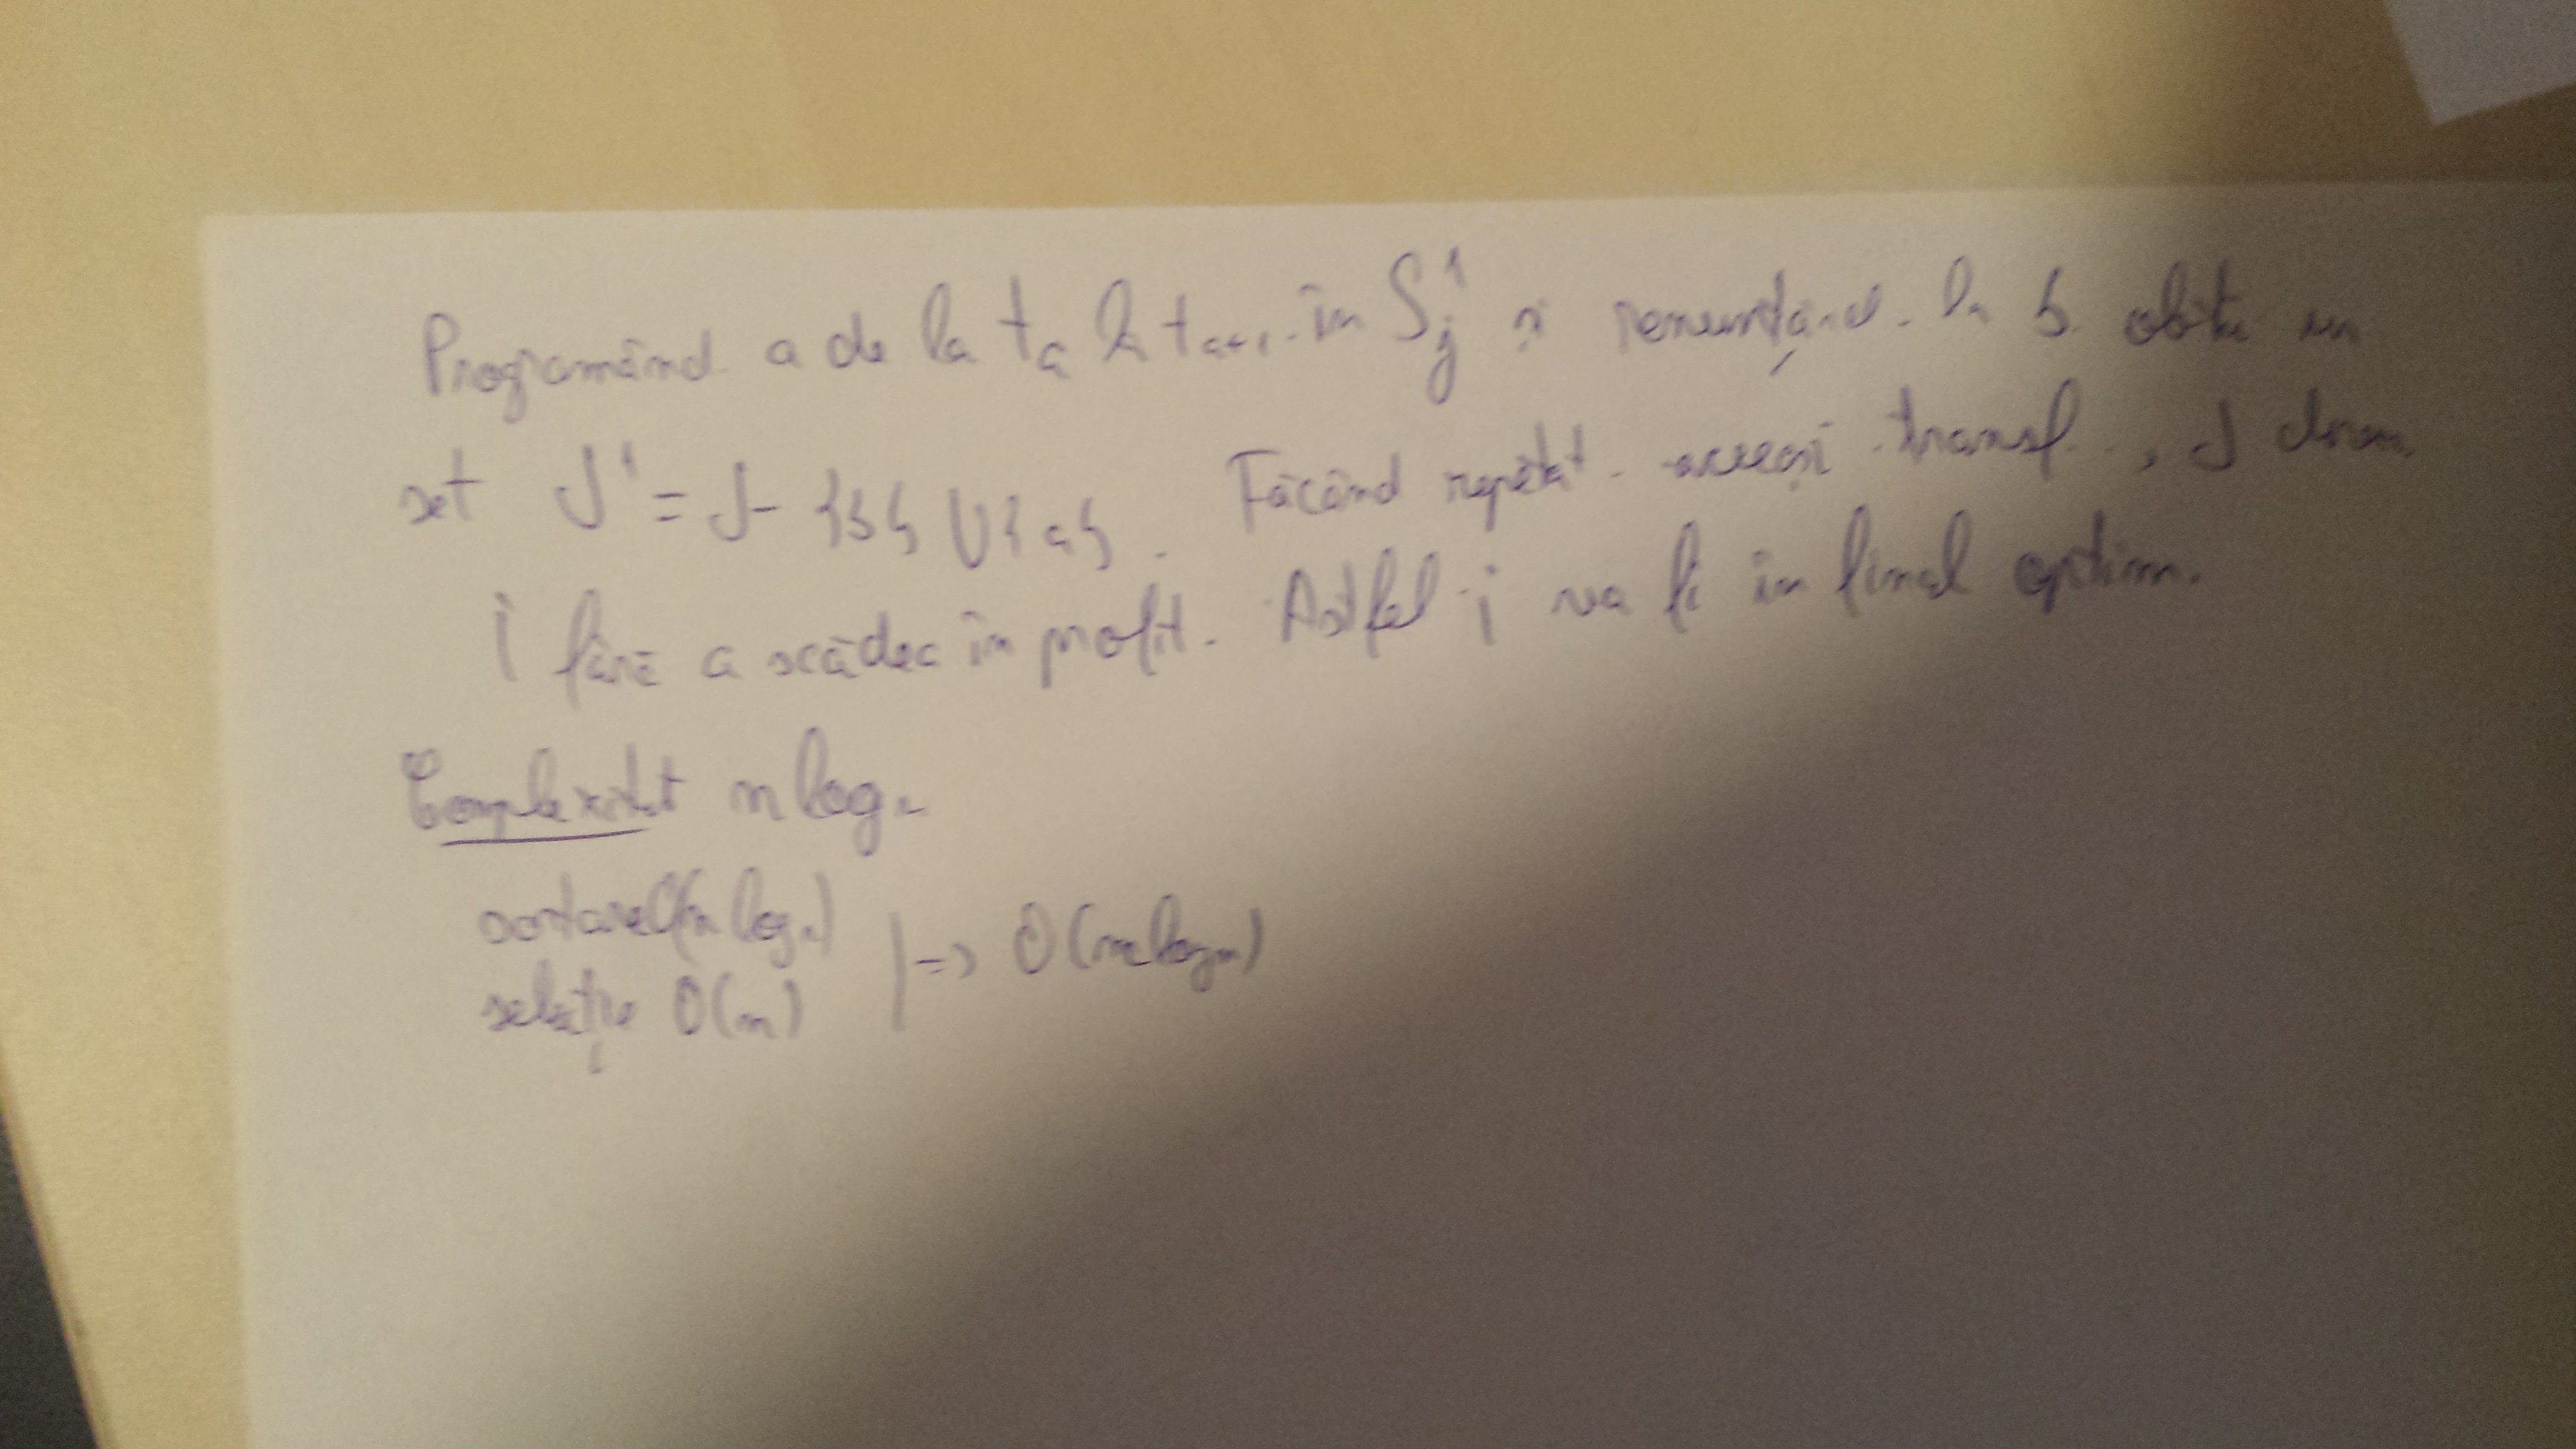 Programând a de la ta la ta+1 în S'j și renunțând la b obtin un
set J' = J - {b} U {a}. Făcând repetat aceeași transf., J devine
i fără a scădea în profit. Astfel i va fi în final optim.
Complexitat n log n
sortare O(n log n)
selecție O(n) | => O(n log n)